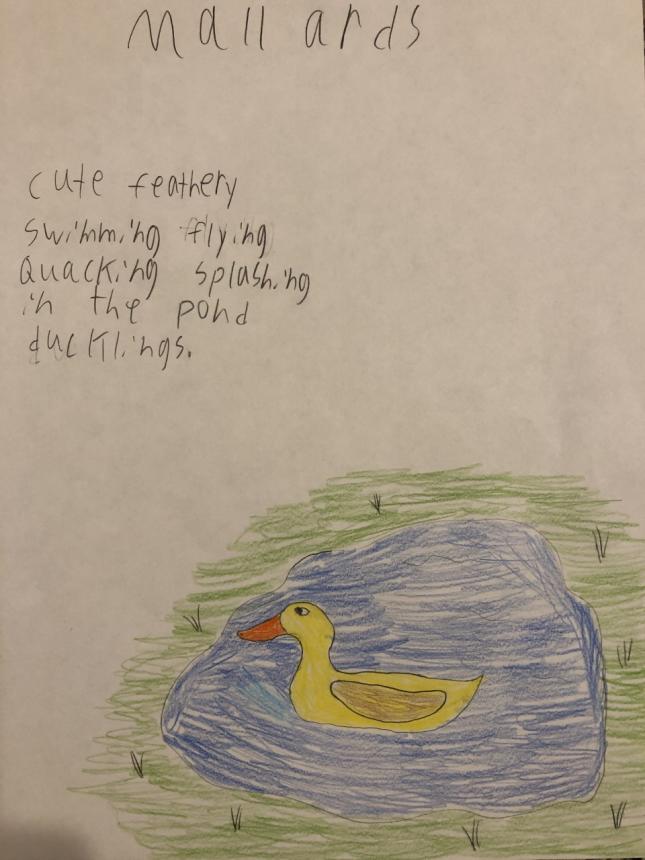 Mallards
cute feathery
swimming flying
Quacking splashing
in the pond
ducklings.